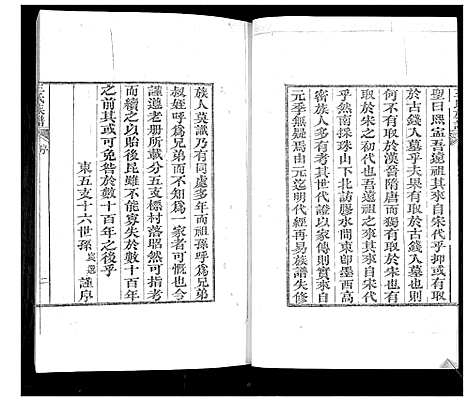 聖曰熙寧吾遠祖其來自宋代乎抑或有取
於古錢入墓乎夫果有取於古錢入墓也則
何不有取於漢晉隋唐而獨有取於宋也有
取於宋者宋之初代也吾遠祖之來其來自宋代
乎然南採珠山下北訪膠水間東即墨西高
密族人多有考其世代證以家傳則實來自
元季無疑焉由元迄明代經再易族譜失修
王氏族譜 序 二
族人莫識乃有同處多年而祖孫呼為兄弟
叔姪呼為兄弟而不知為一家者可慨也今
謹遵老册所載分五支標村落昭然可指考
而續之以貽後昆雖不能寡失於數十百年
之前其或可免咎於數十百年之後乎
東五支十六世孫 謹序